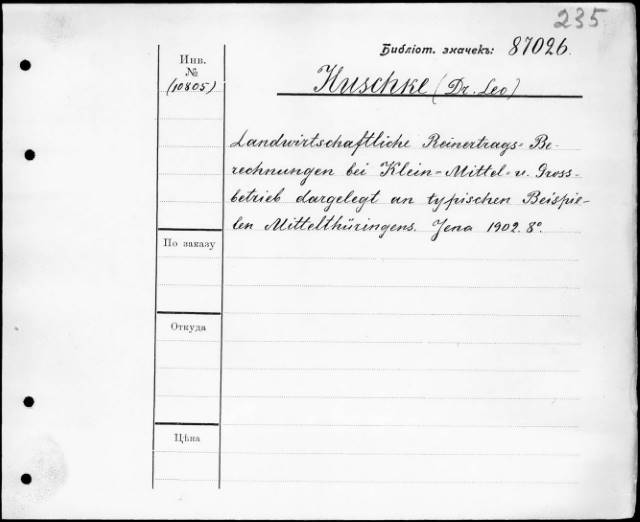 235
Библіот. значекъ: 87026.
Инв.
№
(10805)
Kuschke (Dr. Leo)
Landwirtschaftliche Reinertrags-Be-
rechnungen bei Klein-Mittel- u. Gross-
betrieb dargelegt an typischen Beispie-
len Mittelthüringens. Jena 1902. 8º.
По заказу
Откуда
Цѣна